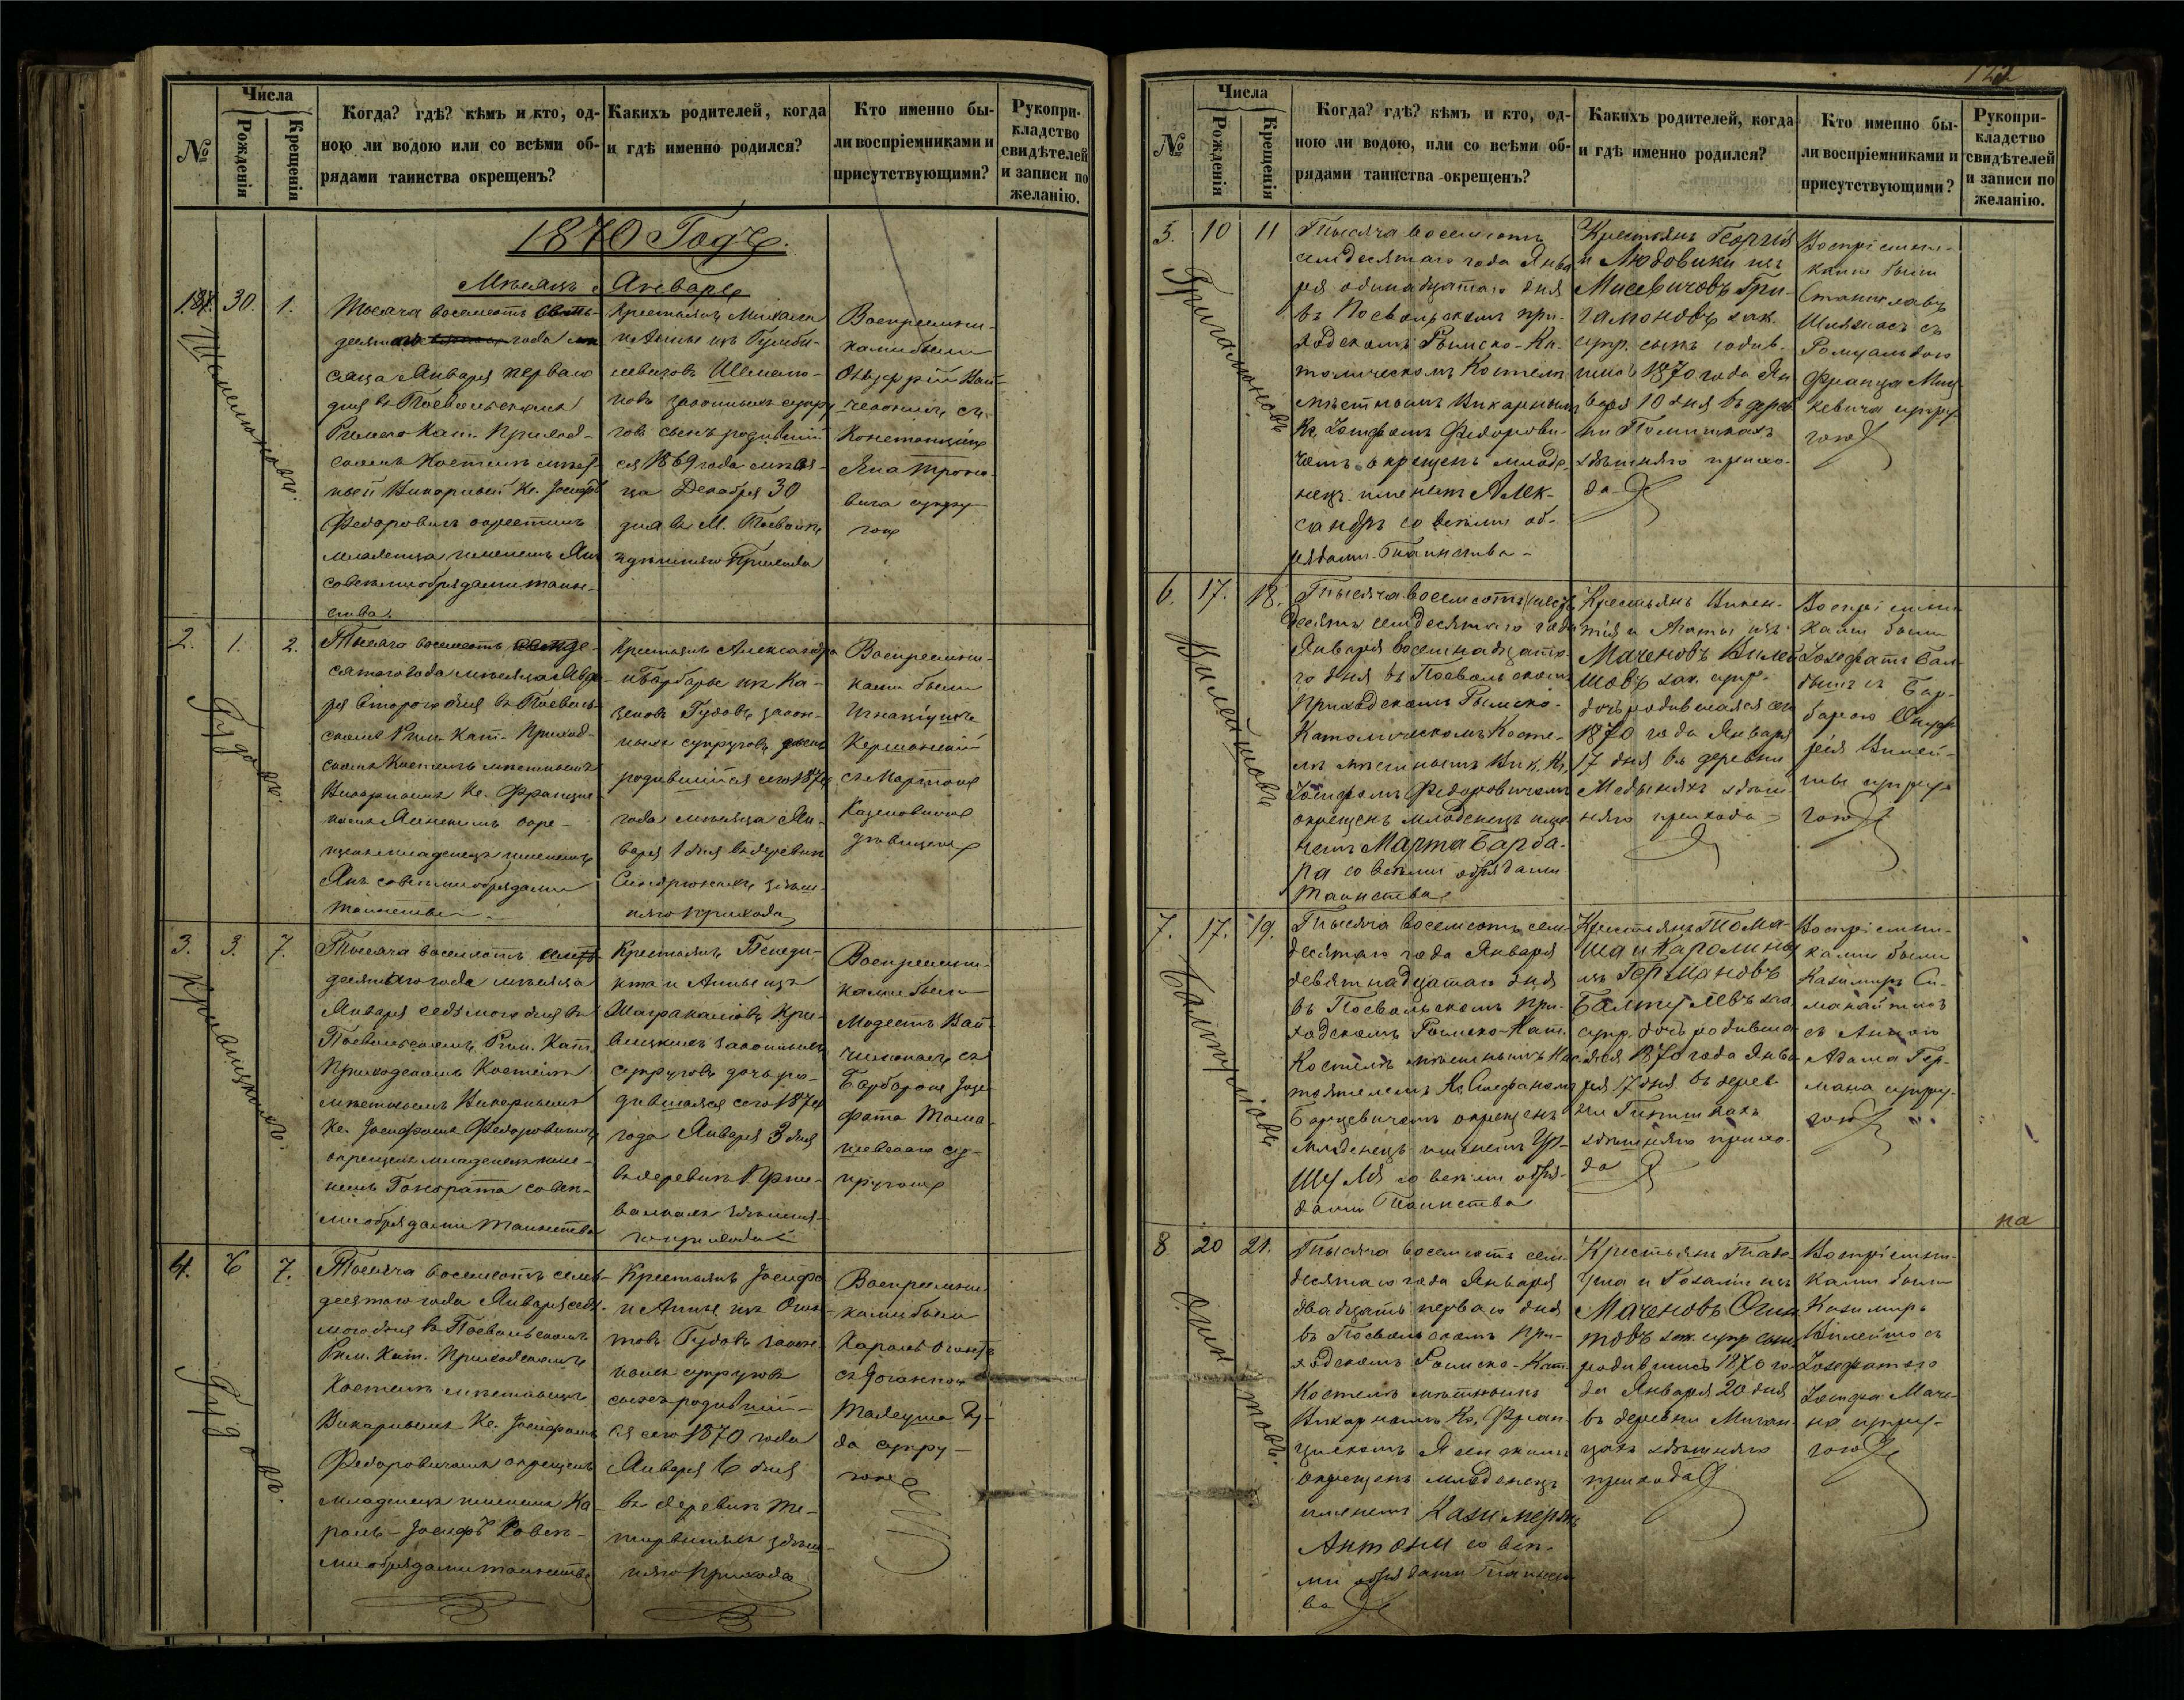 №
Числа
Рожденія
Крещенія
Когда? гдѣ? кѣмъ и кто, од-
ною ли водою или со всѣми об-
рядами таинства окрещенъ?
Какихъ родителей, когда
и гдѣ именно родился?
Кто именно бы-
ли воспріемниками и
присутствующими?
Рукопри-
кладство
свидѣтелей
и записи по
желанію.
1870 Годъ.
Мѣсяцъ Январь
30. 1.
Тысяча восемьсотъ
десятаго года
сяца Января перваго
дня въ Посвольскомъ
Римско Кат. Приход-
скомъ Костелѣ мѣст-
ный Викарный Кс. Іосифъ
Федоровичъ окрестилъ
младенца именемъ Янъ
со всѣми обрядами таин-
ства.
Крестьянъ Михаила
и Анны изъ Гумби-
левичовъ Шемето-
новъ законныхъ супру
говъ сынъ родивший
ся 1869 года мѣся-
ца Декабря 30
дня въ М. Посволѣ
здѣшняго Прихода
Воспріемни-
ками были
Онуфрій Вай-
чело съ
Констанціею
Яна
вича супру-
гою
2. 1. 2.
Гудовъ.
Тысяча восемьсотъ семиде-
сятого года мѣсяца Янва-
ря Второго дня въ Посволь-
скомъ Рим. Кат. Приход-
скомъ Костелѣ мѣстнымъ
Викарнымъ Кс. Францис-
комъ Ясенскимъ окре-
щенъ младенецъ именемъ
Янъ со всѣми обрядами
таинства
Крестьянъ Александра
и Барбары изъ Ка-
зеновъ Гудовъ закон-
ныхъ супруговъ сынъ
родившийся сего 1870
года мѣсяца Ян-
варя 1 дня въ деревнѣ
здѣш-
няго прихода
Воспріемни-
ками были
Игнацій
съ Мартою
дѣвицею
3. 3. 7.
Тысяча восемьсотъ семь
десятаго года мѣсяца
Января седьмого дня въ
Посвольскомъ Рим. Кат.
Приходскомъ Костелѣ
мѣстнымъ Викарнымъ
Кс. Іосифомъ Федоровичемъ
окрещенъ младенецъ име-
немъ Гонората со всѣ-
ми обрядами таинства
Крестьянъ Бенеди-
кта и Анны изъ
Шагракаловъ Кри-
вицкихъ законныхъ
супруговъ дочь ро-
дившаяся сего 1870
года Января 3 дня
въ деревнѣ
здѣшня-
го прихода
Воспріемни-
ками были
Модестъ Вай
съ
Барбарою Іозе-
фата Тома-
шевскаго су-
пругою
4. 6 7.
Гудовъ.
Тысяча восемьсотъ семь-
десятого года Января седь-
мого дня въ Посвольскомъ
Рим. Кат. Приходскомъ
Костелѣ мѣстнымъ
Викарнымъ Кс. Іосифомъ
Федоровичемъ окрещенъ
младенецъ именемъ Ка-
роль-Іосифъ со всѣ-
ми обрядами таинства
Крестьянъ Іосифа
и Анны изъ Огин-
товъ Гудовъ закон-
ныхъ супруговъ
сынъ родивший-
ся сего 1870 года
Января 6 дня
въ деревнѣ
здѣш-
няго Прихода
Воспріемни-
ками были
Кароль Огинтъ
съ Іоганною
Тадеуша Гу-
да супру-
гою
122
№
Числа
Рожденія
Крещенія
Когда? гдѣ? кѣмъ и кто, од-
ною ли водою, или со всѣми об-
рядами таинства окрещенъ?
Какихъ родителей, когда
и гдѣ именно родился?
Кто именно бы-
ли воспріемниками и
присутствующими?
Рукопри-
кладство
свидѣтелей
и записи по
желанію.
5. 10 11
Григамоновъ
Тысяча восемьсотъ
семдесятаго года Янва
ря одинадцатаго дня
въ Посвольскомъ при-
ходскомъ Римско-Ка-
толическомъ Костелѣ
мѣстнымъ Викарнымъ
Кс. Іозефомъ Федорови-
чемъ окрещенъ младе-
нецъ именемъ Алек-
сандръ со всѣми об-
рядами Таинства
Крестьянъ Георгія
и Людовики изъ
Мисевичовъ Гри-
гамоновъ зак.
супр. сынъ родив-
шись 1870 года Ян
варя 10 дня въ дерев
ни
здѣшняго прихо-
да
Воспріемни-
ками были
Станиславъ
съ
Ромуальдою
Франца Миц
кевича супру
гою
6. 17. 18.
Вилейшовъ
Тысяча восемсотъ
десятъ семдесятаго года
Января восемнадцата-
го дня въ Посвольскомъ
приходскомъ Римско-
Католическомъ Косте-
лѣ мѣстнымъ Вик. Кс.
Іозефомъ Федоровичемъ
окрещенъ младенецъ име
немъ Марта Барба-
ра со всѣми обрядами
Таинства
Крестьянъ Викен-
тія и Агаты изъ
Маченовъ Вилей
шовъ зак. супр.
дочь родившаяся сего
1870 года Января
17 дня въ деревни
здѣш-
няго прихода
Воспріемни
ками были
Іозефатъ Бал-
съ Бар-
барою Онуф
рія Вилей-
шы супру
гою
7. 17. 19.
Балтушовъ
Тысяча восемсотъ сем-
десятаго года Января
девятнадцатаго дня
въ Посвольскомъ При-
ходскомъ Римско-Кат.
Костелѣ мѣстнымъ Нас
тоятелемъ Кс. Стефаномъ
Барцевичемъ окрещенъ
младенецъ именемъ Ур-
шуля со всѣми обря-
дами Таинства
Крестьянъ Тома-
ша и Каролины
изъ Германовъ
зак.
супр. дочь родивша-
яся 1870 года Янва
ря 17 дня въ дерев
ни
здѣшняго прихо-
да
Воспріемни-
ками были
Казимиръ Си-
съ Анною
Адама Гер-
мана супру-
гою
на
8 20 21.
Огинтовъ.
Тысяча восемсотъ сем-
десятаго года Января
двадцать перваго дня
въ Посвольскомъ При-
ходскомъ Римско-Кат.
Костелѣ мѣстнымъ
Викарнымъ Кс. Фран-
цискомъ Ясенскимъ
окрещенъ младенецъ
именемъ Казимеръ
Антони со всѣ-
ми обрядами Таинст
ва
Крестьянъ Таде
уша и Розаліи изъ
Маченовъ Огин
товъ зак. супр. сынъ
родившись 1870 го-
да Января 20 дня
въ деревни Миган-
цахъ здѣшняго
прихода
Воспріемни-
ками были
Казимиръ
Вилейшо съ
Іозефатою
Іозефа Маче-
на супру-
гою